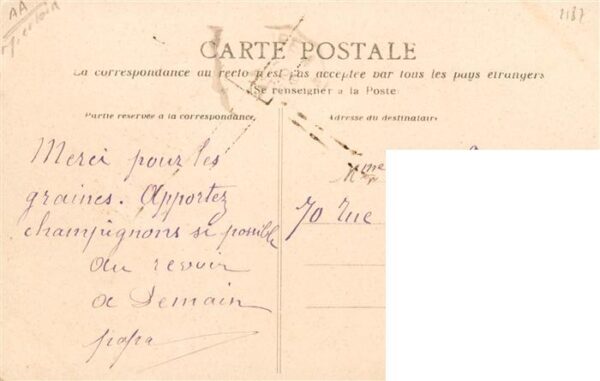 AA
2187
CARTE POSTALE
La correspondance au recto n'est pas acceptée par tous les pays étrangers
(Se renseigner à la Poste)
Partie réservée à la correspondance.
Adresse du destinataire
Merci pour les
graines. Apportez
champignons si possible
au revoir
a Demain
papa
Mme
70 Rue